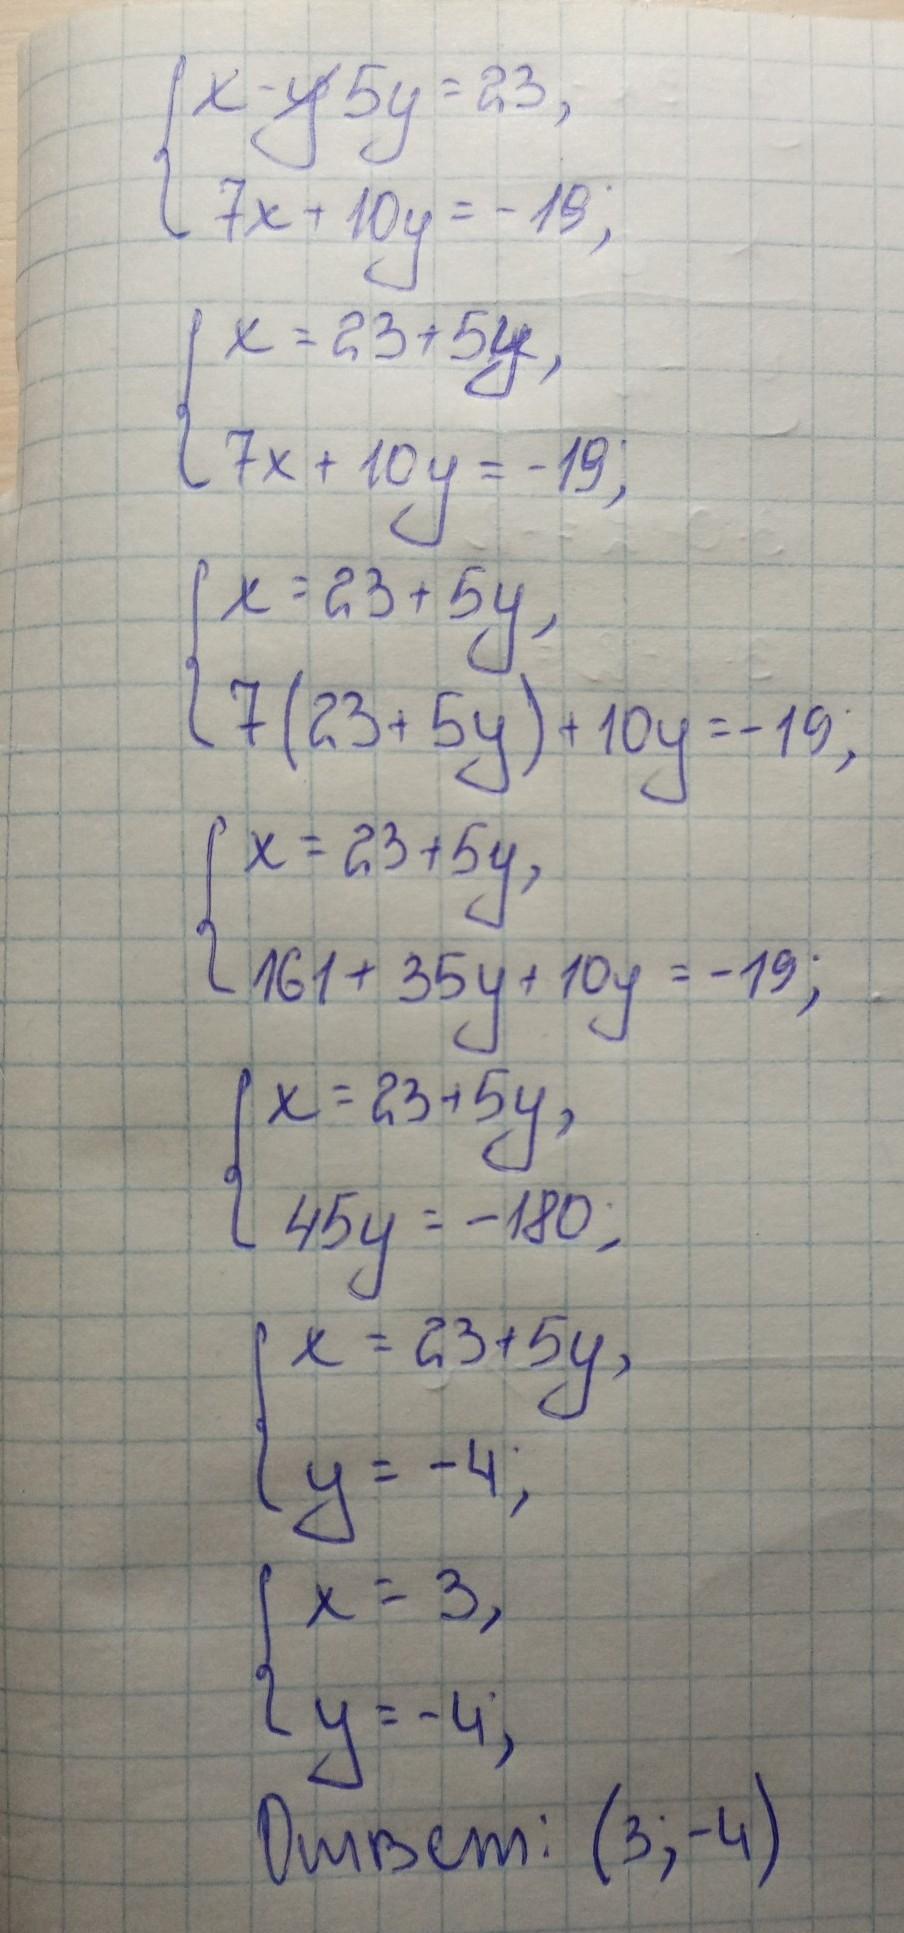 x - 5y = 23,
7x + 10y = -19;
x = 23 + 5y,
7x + 10y = -19;
x = 23 + 5y,
7(23 + 5y) + 10y = -19;
x = 23 + 5y,
161 + 35y + 10y = -19;
x = 23 + 5y,
45y = -180;
x = 23 + 5y,
y = -4;
x = 3,
y = -4;
Ответ: (3; -4)